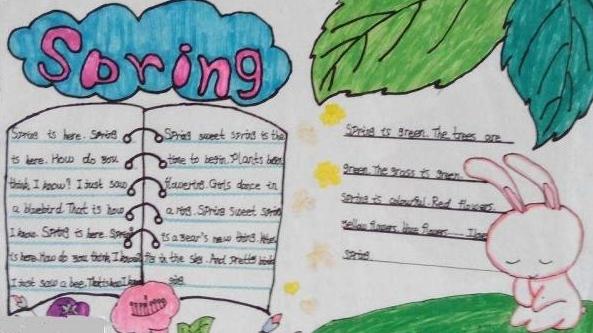 Spring
Spring is here. Spring
is here. How do you
think I know? I just saw
a bluebird. That is how
I know. Spring is here. Spring
is here. How do you think I know?
I just saw a bee. That is how I know
Spring sweet spring is the
time to begin. Plants been
flowering. Girls dance in
a ring. Spring sweet spring
is a year's new thing.
in the sky. And pretty birds
sing.
Spring is green. The trees are
green. The grass is green.
Spring is colourful. Red flowers.
yellow flowers, blue flowers...... I love
spring.